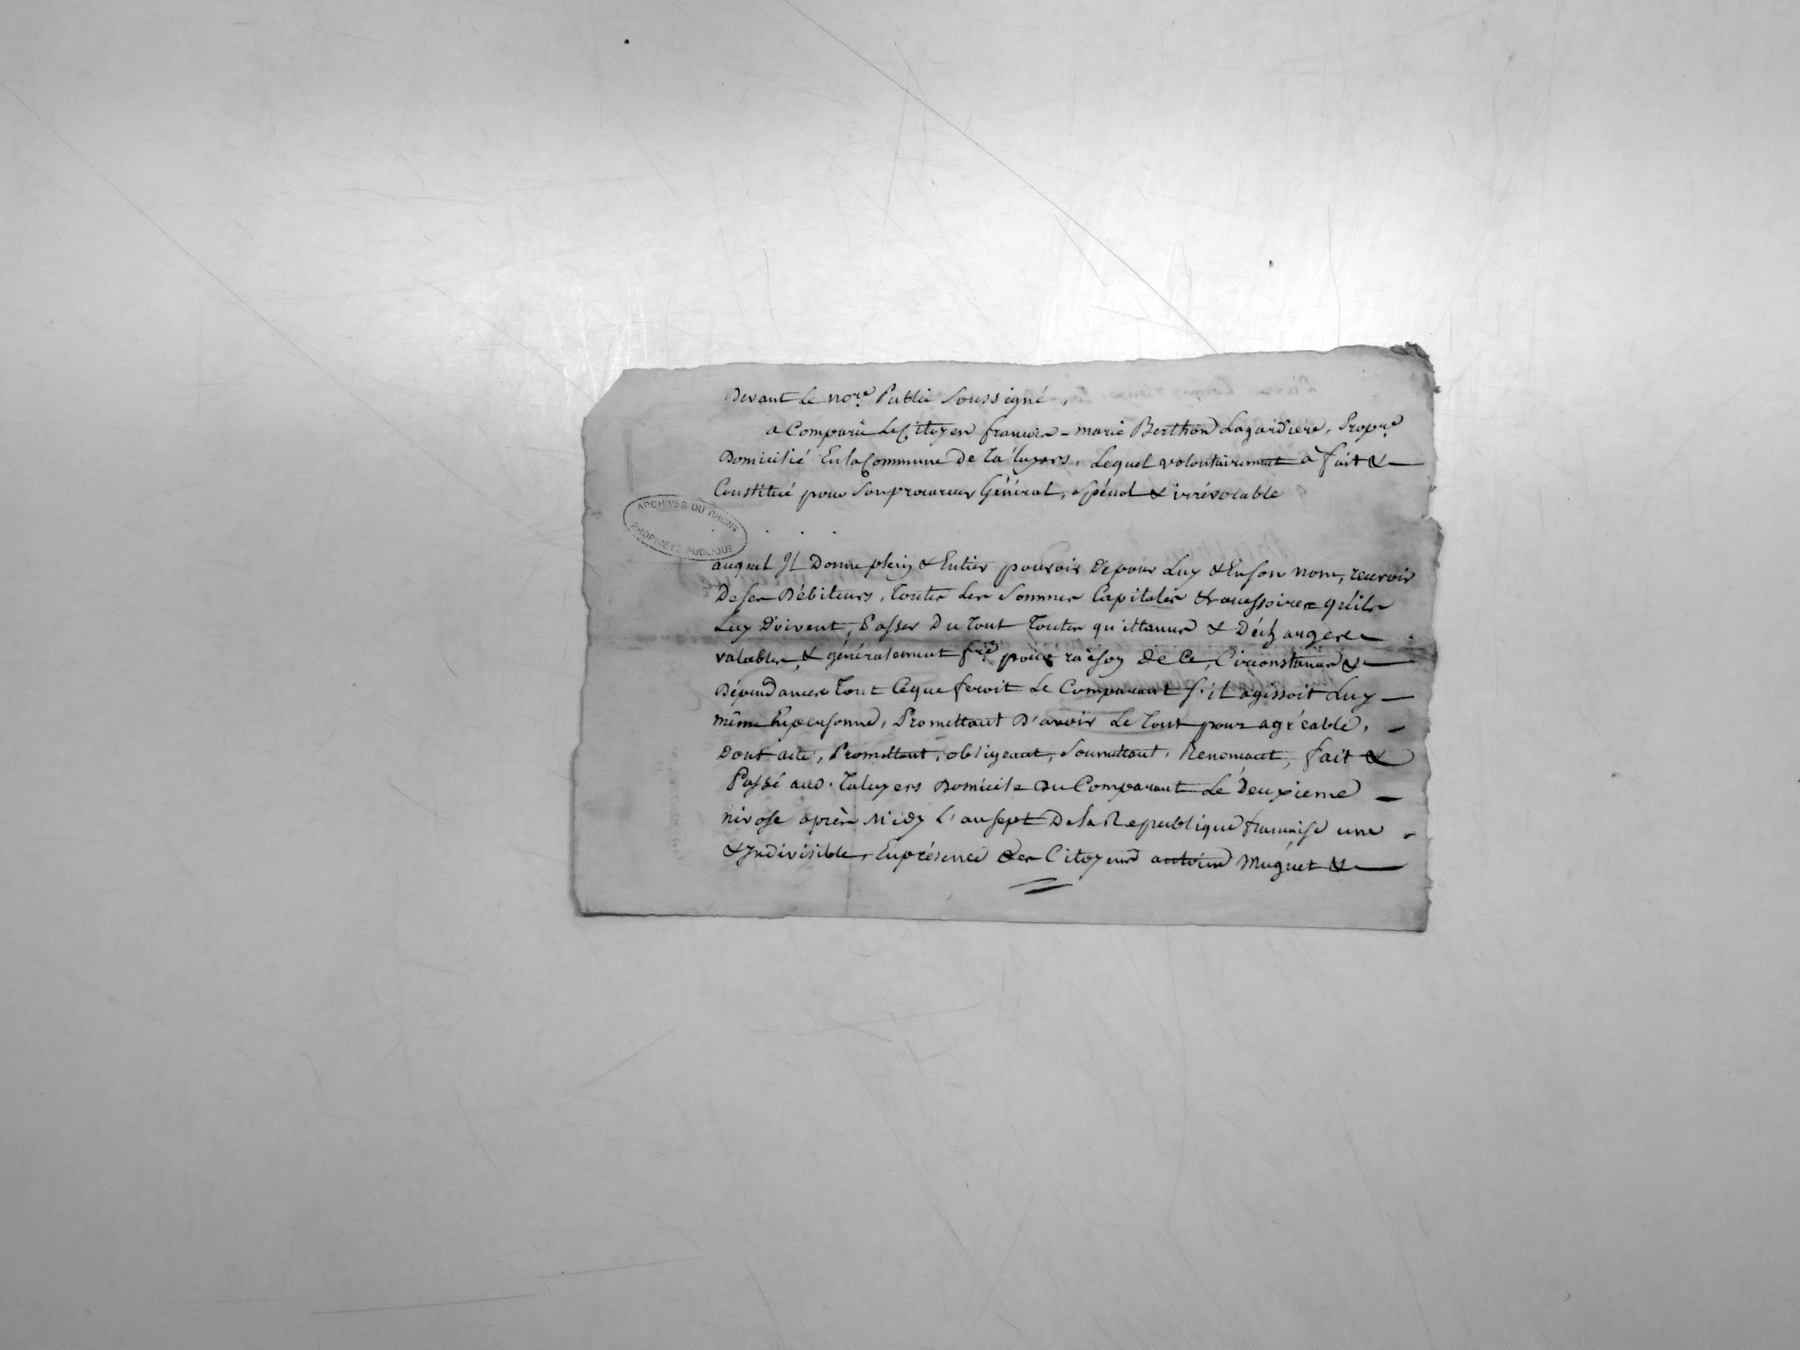 Devant le no.re Public soussigné,
a Comparu le Citoyen françois-marie Berthon Lagardiere, Prop.re
Domicilié En la Commune De Taluyers, Lequel volontairement a fait &
Constitué pour son procureur Général, spécial & irrévocable
. . .
ARCHIVES DU RHONE
PROPRIETE PUBLIQUE
auquel Il Donne plein & Entier pouvoir De pour Luy & En son nom, recevoir
De ses Débiteurs, toutes Les Sommes Capitales & accessoires qu'ils
Luy Doivent, Passer Du tout toutes quittances & Décharges
valables, & généralement fre pour raison de Ce, Circonstances &
Dépendances tout Ce que feroit Le Comparant s'il agissoit Luy
même En personne, Promettant D'avoir Le tout pour agréable,
Dont acte, Promettant, obligeant, soumettant, Renonçant, fait &
Passé aud. Taluyers Domicile Du Comparant Le Deuxieme
nivose après Midy L'an sept De la Republique française une
& Indivisible, En présence des Citoyens antoine Muguet &